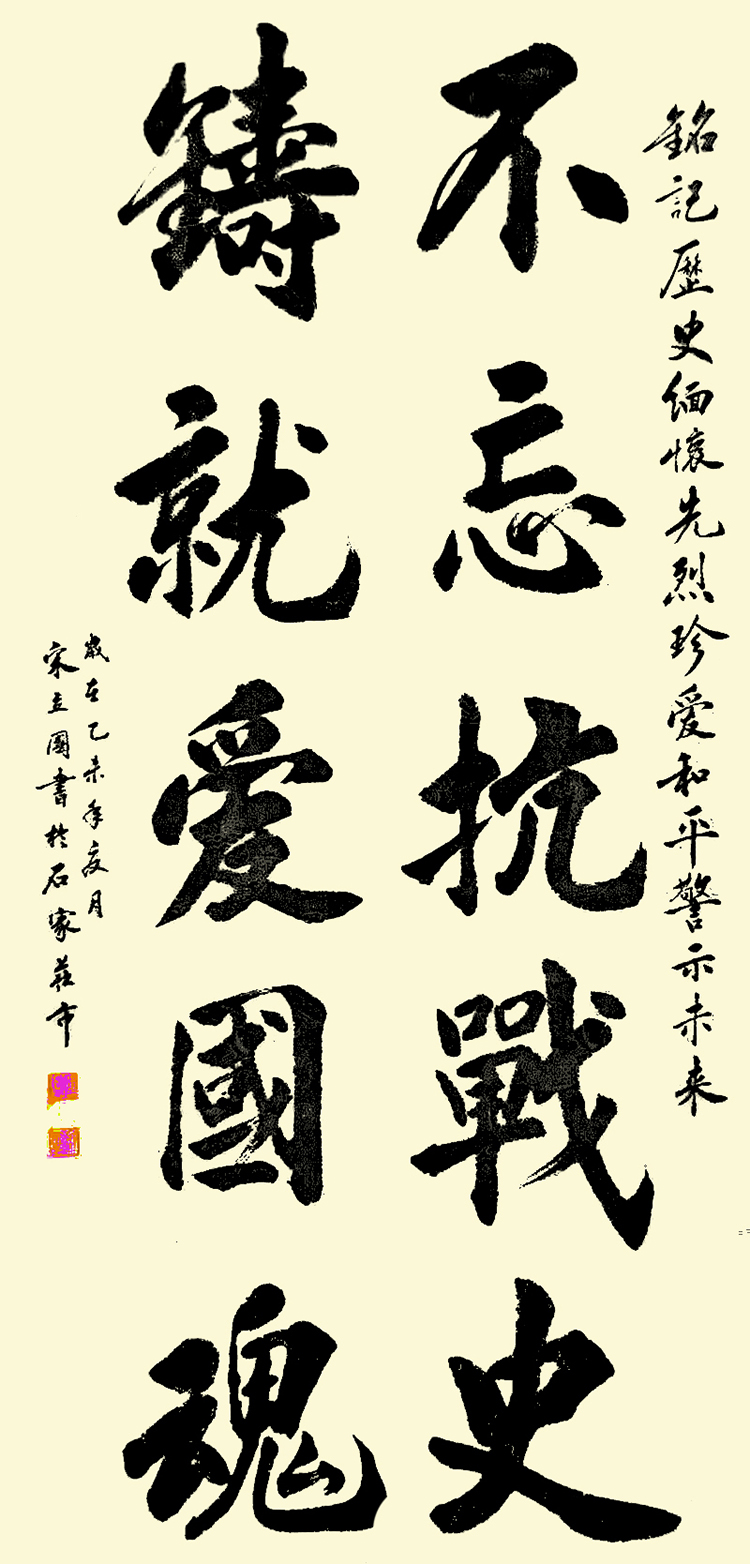 銘記歷史緬懷先烈珍愛和平警示未来
不忘抗戰史
鑄就愛國魂
歲在乙未年夏月
宋立國書於石家莊市